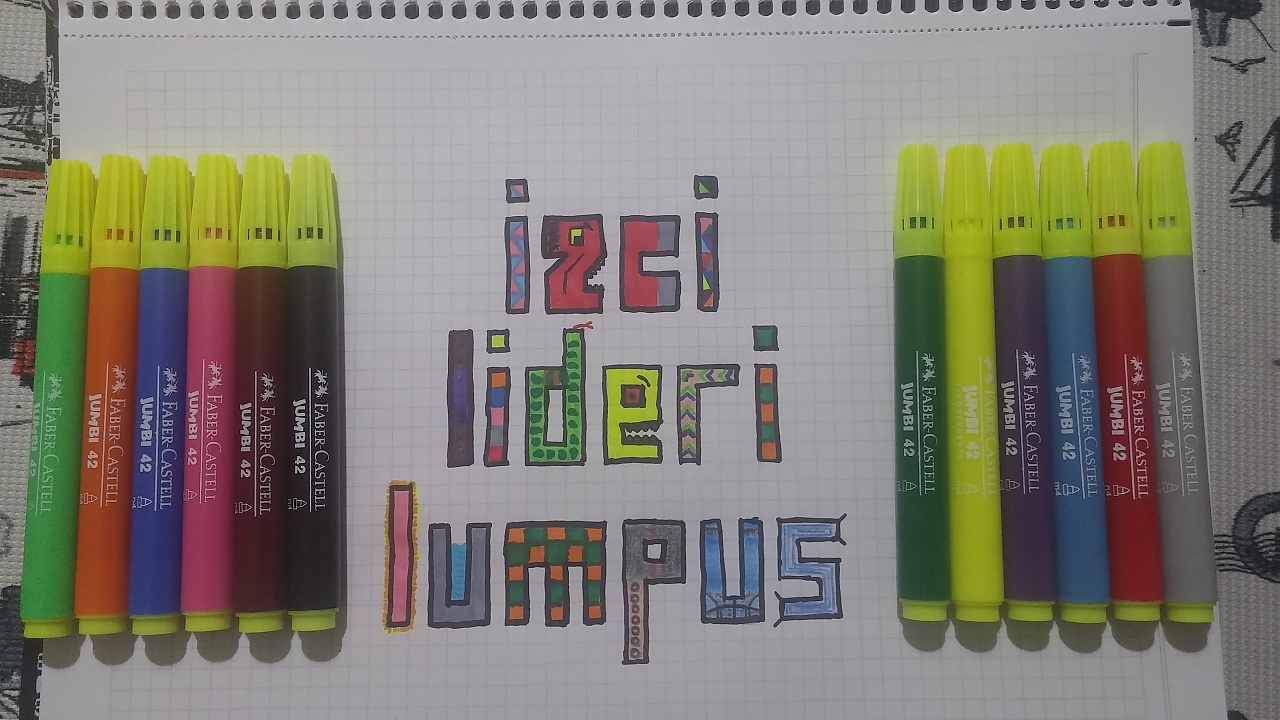 izci
lideri
lumpus
FABER-CASTELL
JUMBI 42
FABER-CASTELL
JUMBI 42
FABER-CASTELL
JUMBI 42
FABER-CASTELL
JUMBI 42
FABER-CASTELL
JUMBI 42
FABER-CASTELL
JUMBI 42
FABER-CASTELL
JUMBI 42
FABER-CASTELL
FABER-CASTELL
JUMBI 42
FABER-CASTELL
JUMBI 42
FABER-CASTELL
JUMBI 42
FABER-CASTELL
JUMBI 42